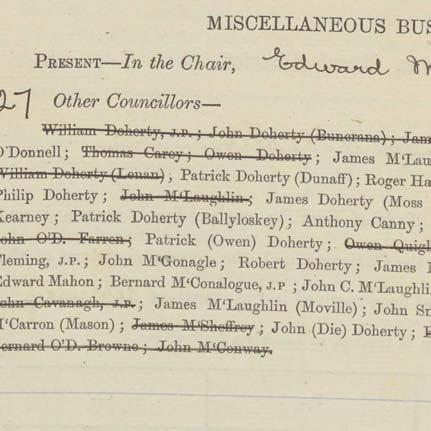 MISCELLANEOUS BUS
PRESENT—In the Chair, Edward M
27 Other Councillors—
William Doherty, J.P.; John Doherty (Buncrana); Jam
O'Donnell; Thomas Carey; Owen Doherty; James M'Lau
William Doherty (Lenan), Patrick Doherty (Dunaff); Roger Ha
Philip Doherty; John M'Laughlin; James Doherty (Moss
Kearney; Patrick Doherty (Ballyloskey); Anthony Canny;
John O'D. Farren; Patrick (Owen) Doherty; Owen Quigl
Fleming, J.P.; John M'Gonagle; Robert Doherty; James
Edward Mahon; Bernard M'Conalogue, J.P; John C. M'Laughli
John Cavanagh, J.P.; James M'Laughlin (Moville); John Sm
M'Carron (Mason); James M'Sheffrey; John (Die) Doherty;
Bernard O'D. Browne; John M'Conway.